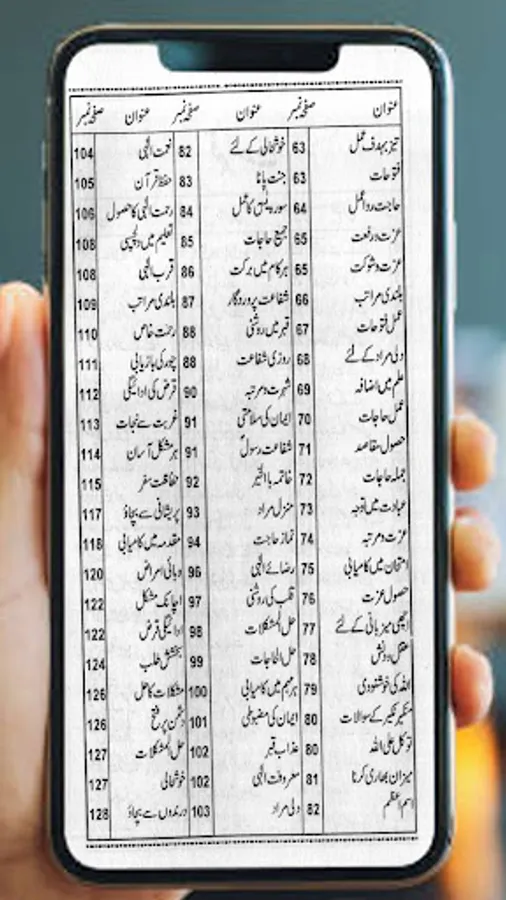 عنوان صفحہ نمبر عنوان صفحہ نمبر عنوان صفحہ نمبر
تیز بہدف عمل 63 خوشحالی کے لئے 82 نعمت الٰہی 104
فتوحات 63 جنت پانا 83 حفظ قرآن 105
حاجت روا عمل 64 سورہ یٰسٓ کا عمل 84 رحمت الٰہی کا حصول 106
عزت و رفعت 65 جمیع حاجات 85 تعلیم میں دلچسپی 108
عزت و شوکت 65 ہر کام میں برکت 86 قرب الٰہی 108
بلندی مراتب 66 شفاعت پروردگار 87 بلندی مراتب 109
عمل فتوحات 67 قبر میں روشنی 88 رحمت خاص 110
دلی مراد کے لئے 68 روزی شفاعت 88 چور کی بازیابی 111
علم میں اضافہ 69 شہرت و مرتبہ 90 قرض کی ادائیگی 112
عمل حاجات 70 ایمان کی سلامتی 91 غربت سے نجات 113
حصول مقاصد 71 شفاعت رسولؐ 91 ہر مشکل آسان 114
جملہ حاجات 72 خاتمہ بالخیر 92 حفاظت سفر 115
عبادت میں توجہ 73 منزل مراد 93 پریشانی سے بچاؤ 117
عزت و مرتبہ 74 نماز حاجت 94 مقدمہ میں کامیابی 118
امتحان میں کامیابی 75 رضائے الٰہی 96 وبائی امراض 120
حصول عزت 76 قلب کی روشنی 97 اچانک مشکل 122
اچھی میزبانی کے لئے 77 حل المشکلات 98 ادائیگی قرض 122
عقل و دانش 78 حل الحاجات 99 بخشش طلب 124
اللہ کی خوشنودی 79 ہر مہم میں کامیابی 100 مشکلات کا حل 126
منکر نکیر کے سوالات 80 ایمان کی مضبوطی 101 دشمن پر فتح 126
توکل علی اللہ 80 عذاب قبر 102 حل المشکلات 127
میزان بھاری کرنا 81 معروفت الٰہی 102 خوشحالی 127
اسم اعظم 82 دلی مراد 103 درندوں سے بچاؤ 128